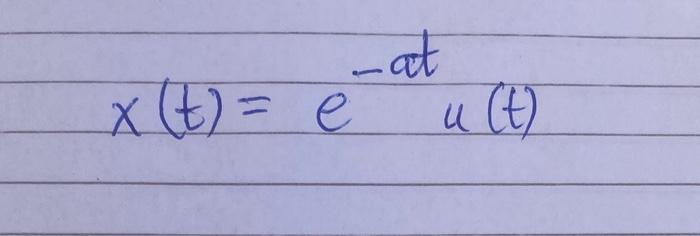 x(t) = e^{-at} u(t)